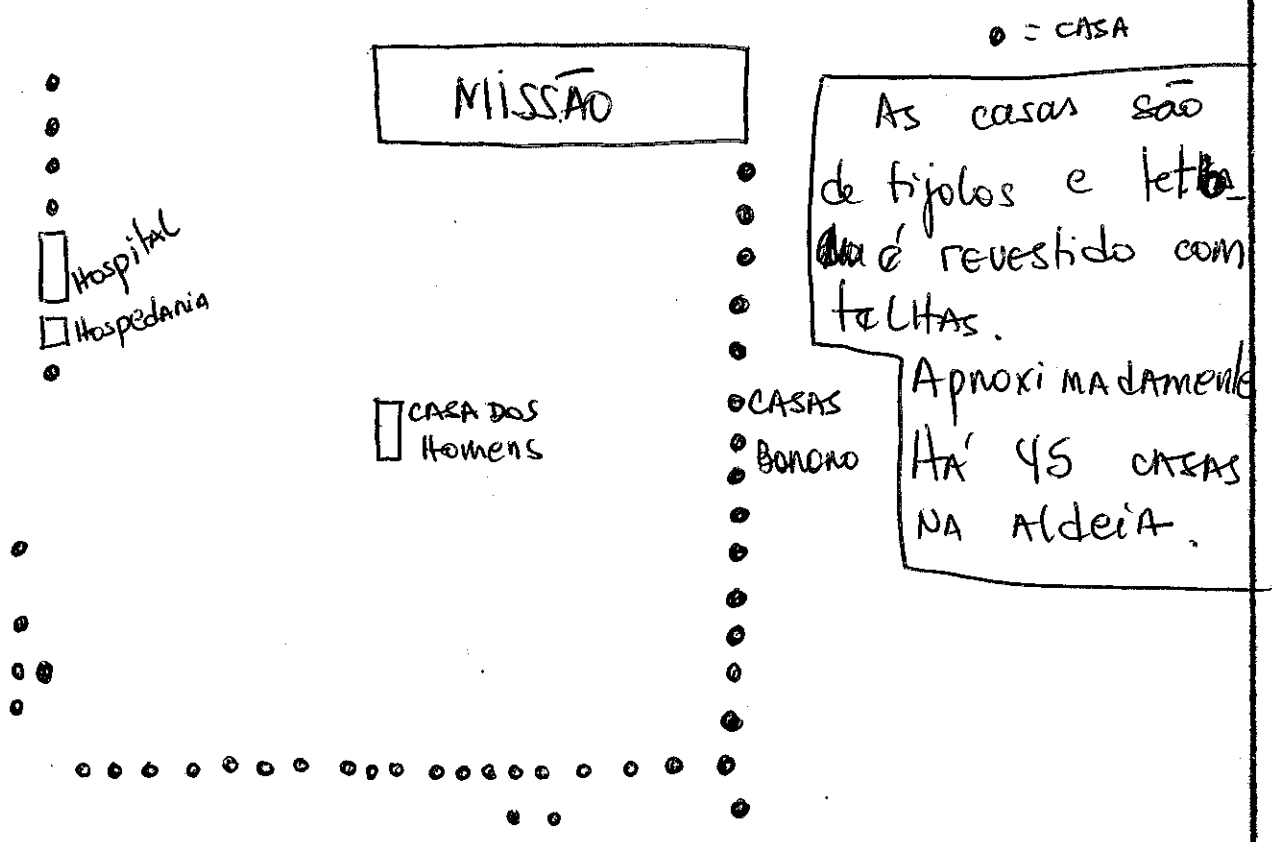 = CASA
MISSÃO
As casas são
de tijolos e
é revestido com
teLHAs.
AproxiMAdAmente
HÁ 45 CASAS
NA AldeiA.
HospitAl
HospedAriA
CASA DOS
Homens
CASAS
BORORO